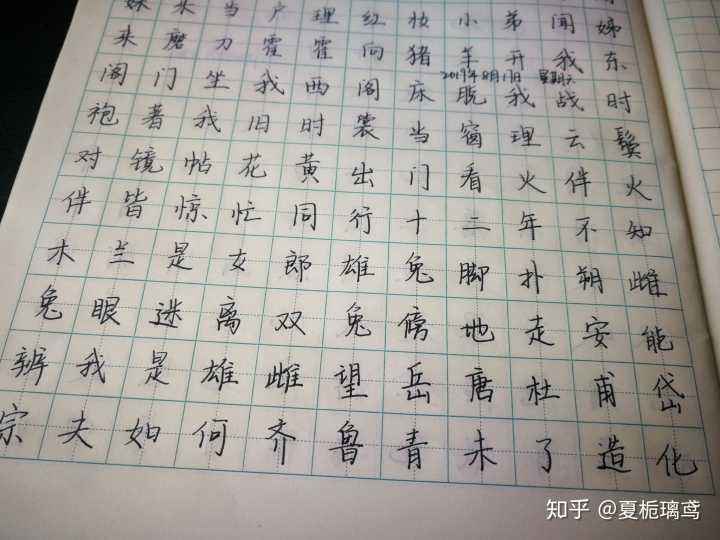 妹来当户理红妆小弟闻姊
来磨刀霍霍向猪羊开我东
2019年8月17日 星期六
阁门坐我西阁床脱我战时
袍著我旧时裳当窗理云鬓
对镜帖花黄出门看火伴火
伴皆惊忙同行十二年不知
木兰是女郎雄兔脚扑朔雌
兔眼迷离双兔傍地走安能
辨我是雄雌望岳唐杜甫岱
宗夫如何齐鲁青未了造化
知乎 @夏栀璃鸢